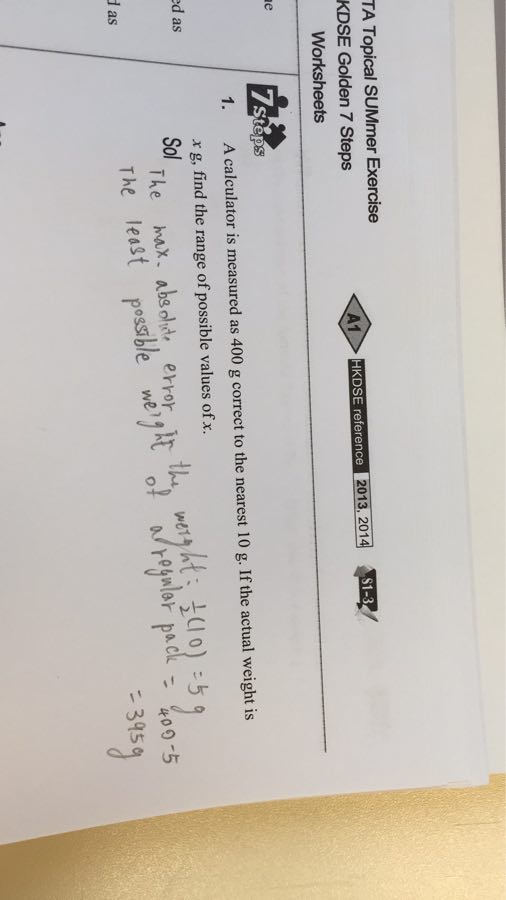 TA Topical SUMmer Exercise
KDSE Golden 7 Steps
Worksheets
A1 HKDSE reference 2013, 2014 S1-3
7 steps
1. A calculator is measured as 400 g correct to the nearest 10 g. If the actual weight is
x g, find the range of possible values of x.
Sol
The max. absolute error in the weight: ½(10) = 5 g
The least possible weight of a regular pack = 400-5
= 395g
ed as
d as